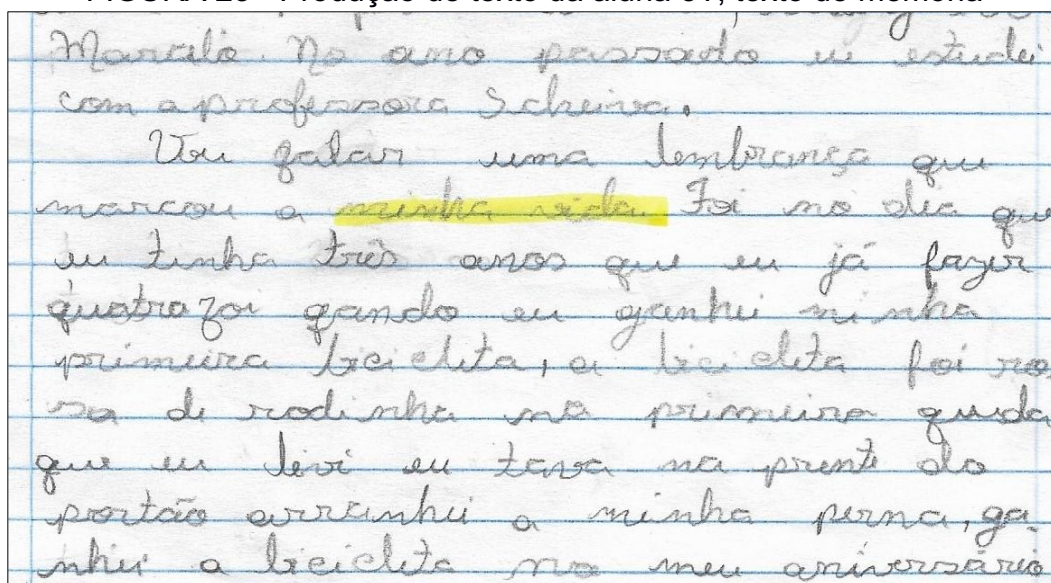 Marcelo. No ano passado eu estudei
com a professora Scheiva.
Vou falar uma lembrança que
marcou a minha vida. Foi no dia que
eu tinha três anos que eu já fazer
quatro foi gando eu ganhei minha
primeira bicicleta, a bicicleta foi ro
sa de rodinha na primeira queda
que eu levi eu tava na prente do
portão arranhei a minha perna, ga
nhei a bicicleta no meu aniversário